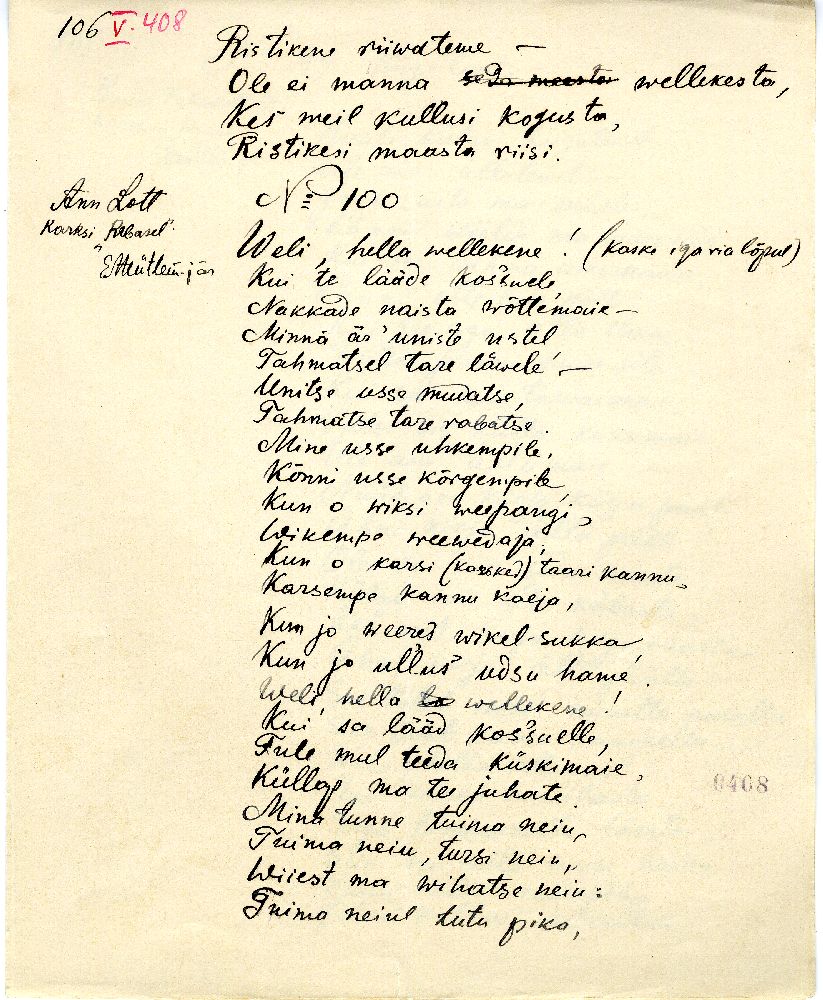 106 V. 408
Ristikene riiwateme —
Ole ei manna seda meesta wellekesta,
Kes meil kullusi kogusta,
Ristikesi maasta riisi.
No 100
Ann Lott
Karksi "Pöbasel".
Weli, hella wellekene! (kaske iga ria lõpul)
Kui te lääde kossuele,
Nakkade naista wõttemaie —
Minnä är' uniste ustel
Tahmatsel tare läwele! —
Unitse usse mudatse,
Tahmatse tare rabatse.
Mine usse uhkempile,
Kõnni usse kõrgempile,
Kun o wiksi weepangi,
Wikempa weewedaja,
Kun o karsi (kassked) taari kannu,
Karsempa kannu kaeja,
Kun jo weered wikel-sukka,
Kun jo ullus udsu hame!
Weli, hella wellekene!
Kui sa lääd kossuelle,
Tule mul teeda küskimaie,
Küllap ma tee juhate.
Mina tunne tuima neiu,
Tuima neiu, tursi neiu,
Wiiest ma wihatse neiu:
Tuima neiul tutu pika,
0408